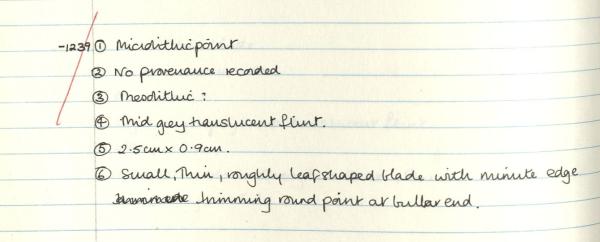 -1239 ① Microlithic point
② No provenance recorded
③ Mesolithic ?
④ Mid grey translucent flint.
⑤ 2.5cm x 0.9cm.
⑥ Small, Thin, roughly leaf shaped blade with minute edge
trimming round point at bulbar end.